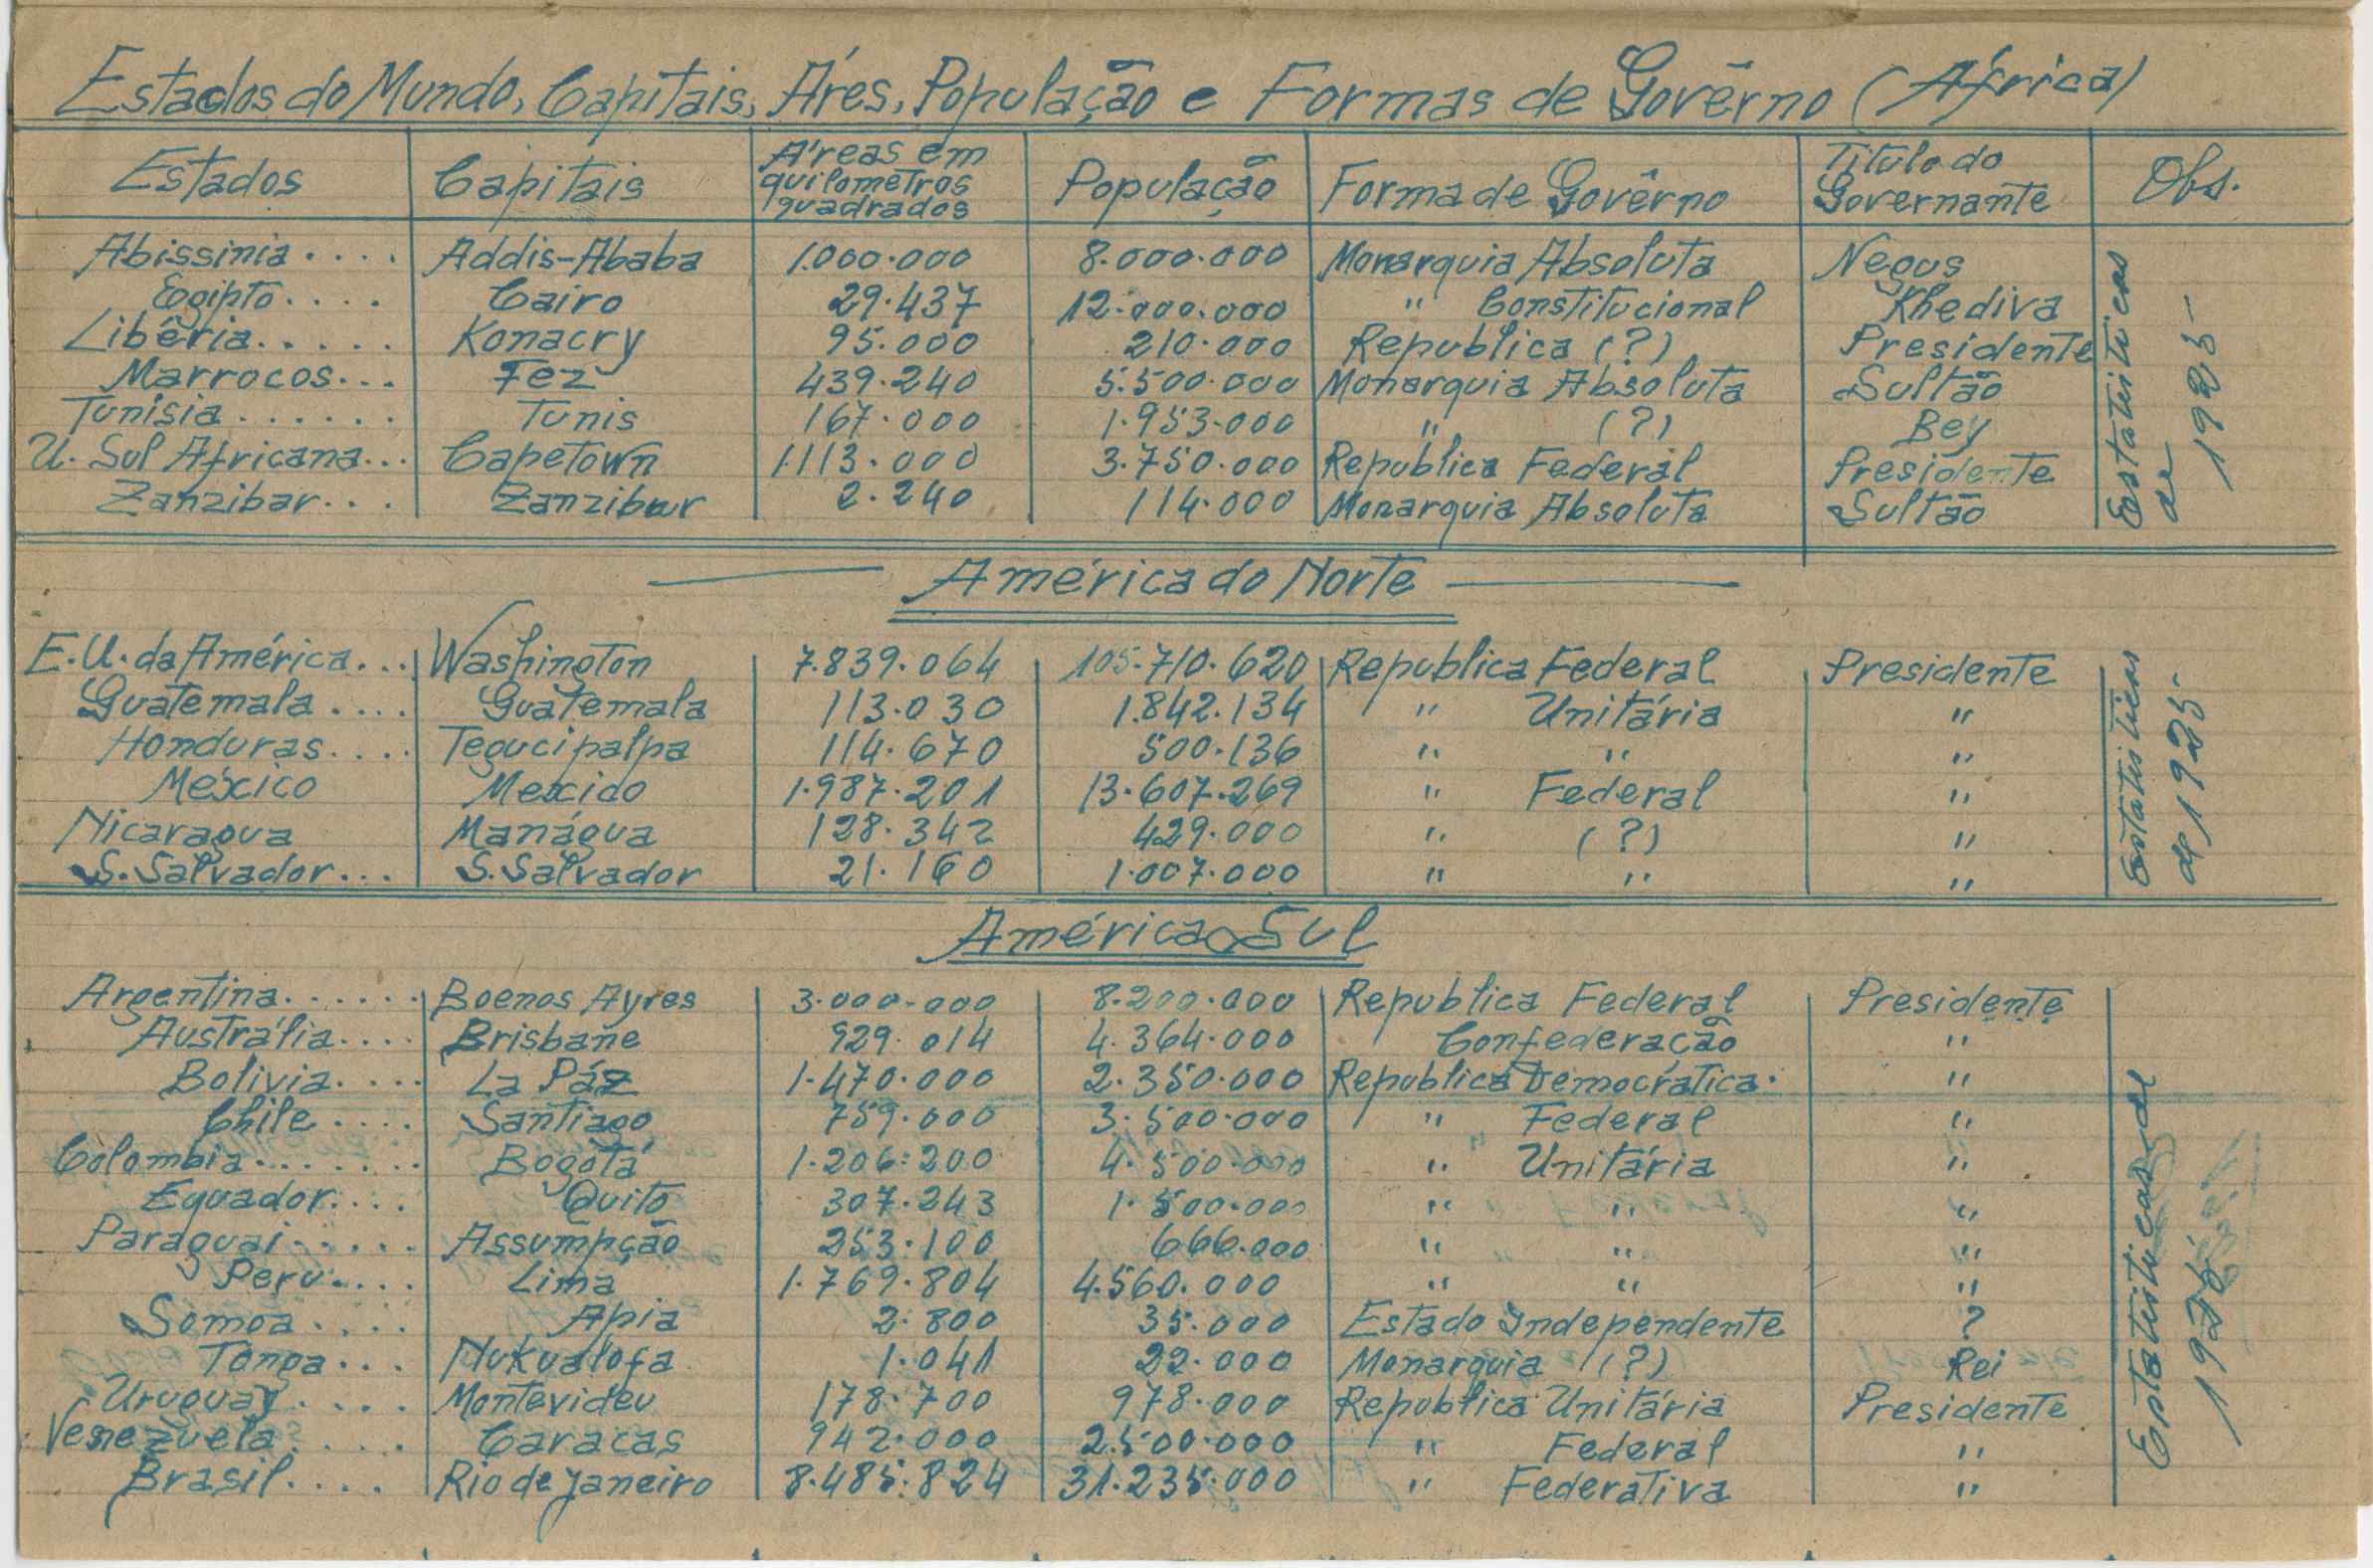 Estados do Mundo, Capitais, Áres, População e Formas de Govêrno (África)
Estados Capitais Áreas em quilometros quadrados População Forma de Govêrno Titulo do Governante Obs.
Abissinia .... Addis-Ababa 1.000.000 8.000.000 Monarquia Absoluta Negus
Egipto .... Cairo 29.437 12.000.000 " Constitucional Khediva
Libéria ..... Konacry 95.000 210.000 Republica (?) Presidente
Marrocos ... Fez 439.240 5.500.000 Monarquia Absoluta Sultão
Tunisia ...... Tunis 167.000 1.953.000 " (?) Bey
U. Sul Africana ... Capetown 1.113.000 3.750.000 Republica Federal Presidente
Zanzibar ... Zanzibar 2.240 114.000 Monarquia Absoluta Sultão
Estatisticas
de 1925-
América do Norte
E.U. da América ... Washington 7.839.064 105.710.620 Republica Federal Presidente
Guatemala .... Guatemala 113.030 1.842.134 " Unitária "
Honduras .... Tegucipalpa 114.670 500.136 " " "
México Mexico 1.987.201 13.607.269 " Federal "
Nicaragua Manágua 128.342 429.000 " (?) "
S. Salvador ... S. Salvador 21.160 1.007.000 " " "
Estatisticas
de 1925-
América Sul
Argentina ...... Boenos Ayres 3.000.000 8.200.000 Republica Federal Presidente
Austrália .... Brisbane 929.014 4.364.000 Confederação "
Bolivia .... La Páz 1.470.000 2.350.000 Republica Democrática. "
Chile .... Santiago 759.000 3.500.000 " Federal "
Colombia ....... Bogotá 1.206.200 4.500.000 " Unitária "
Equador .... Quito 307.243 1.500.000 " " "
Paraguai ..... Assumpção 253.100 666.000 " " "
Peru .... Lima 1.769.804 4.560.000 " " "
Somoa .... Apia 2.800 35.000 Estado Independente ?
Tonga ... Nukualofa 1.041 22.000 Monarquia (?) Rei
Uruguay .... Montevideu 178.700 978.000 Republica Unitária Presidente
Venezuela ..... Caracas 942.000 2.500.000 " Federal "
Brasil .... Rio de Janeiro 8.485.824 31.235.000 " Federativa "
Estatisticas de